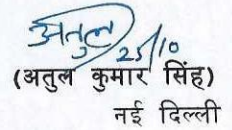 अतुल
25/10
(अतुल कुमार सिंह)
नई दिल्ली